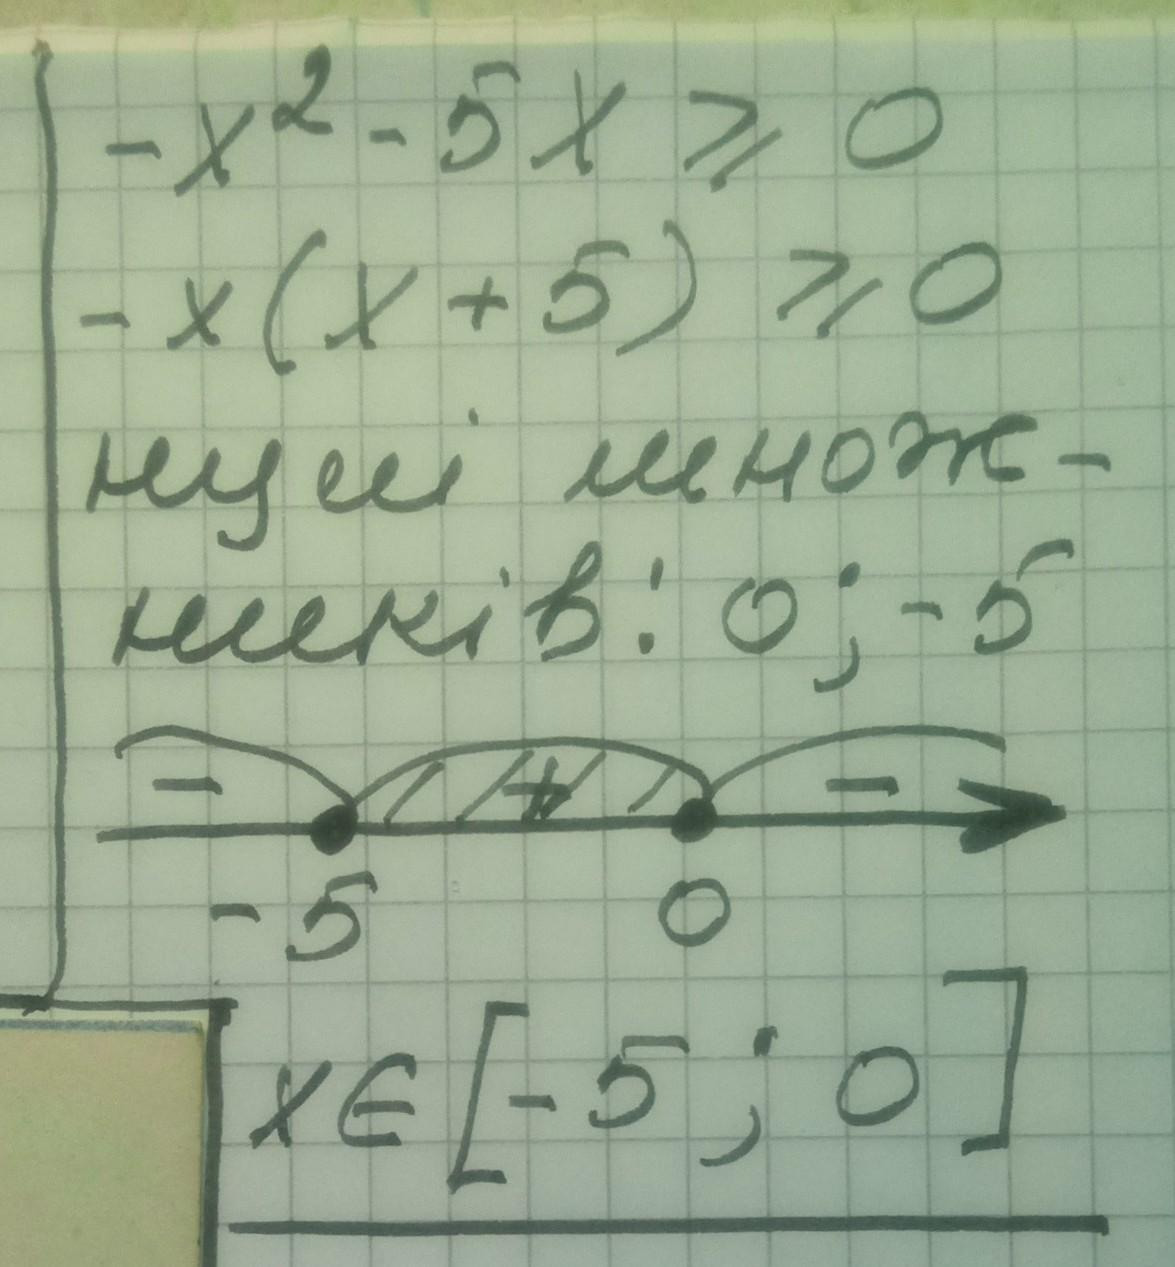 -x² - 5x ⩾ 0
-x(x + 5) ⩾ 0
нулі множ-
ників: 0; -5
- + -
-5 0
x∈[-5; 0]